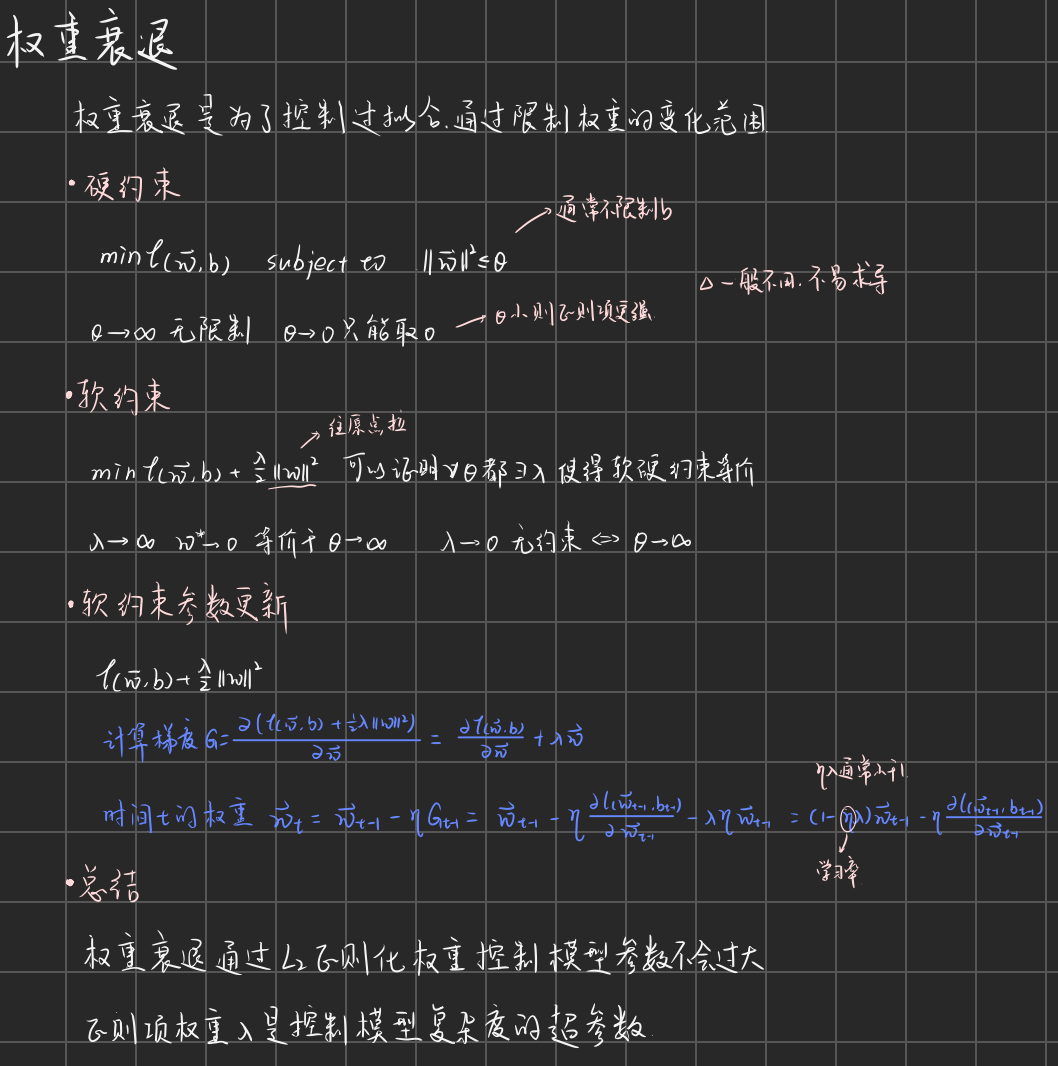 权重衰退
权重衰退是为了控制过拟合.通过限制权重的变化范围
·硬约束
→通常不限制b
min ℓ(w⃗,b) subject to ||w⃗||²≤θ
△一般不用.不易求导
θ→∞ 无限制 θ→0只能取0 →θ小则正则项更强
·软约束
→往原点拉
min ℓ(w⃗,b) + λ/2 ||w||² 可以证明∀θ都∃λ使得软硬约束等价
λ→∞ w*→0 等价于θ→∞ λ→0 无约束 <=> θ→∞
·软约束参数更新
ℓ(w⃗,b)+λ/2 ||w||²
计算梯度G=∂(ℓ(w⃗,b)+½λ||w||²)/∂w⃗ = ∂ℓ(w⃗,b)/∂w⃗ + λw⃗
ηλ通常小于1
时间t的权重 w⃗ₜ = w⃗ₜ₋₁ - ηGₜ₋₁ = w⃗ₜ₋₁ - η ∂ℓ(w⃗ₜ₋₁,bₜ₋₁)/∂w⃗ₜ₋₁ - λη w⃗ₜ₋₁ = (1-ηλ)w⃗ₜ₋₁ - η ∂ℓ(w⃗ₜ₋₁,bₜ₋₁)/∂w⃗ₜ₋₁
学习率
·总结
权重衰退通过L₂正则化权重控制模型参数不会过大
正则项权重λ是控制模型复杂度的超参数.